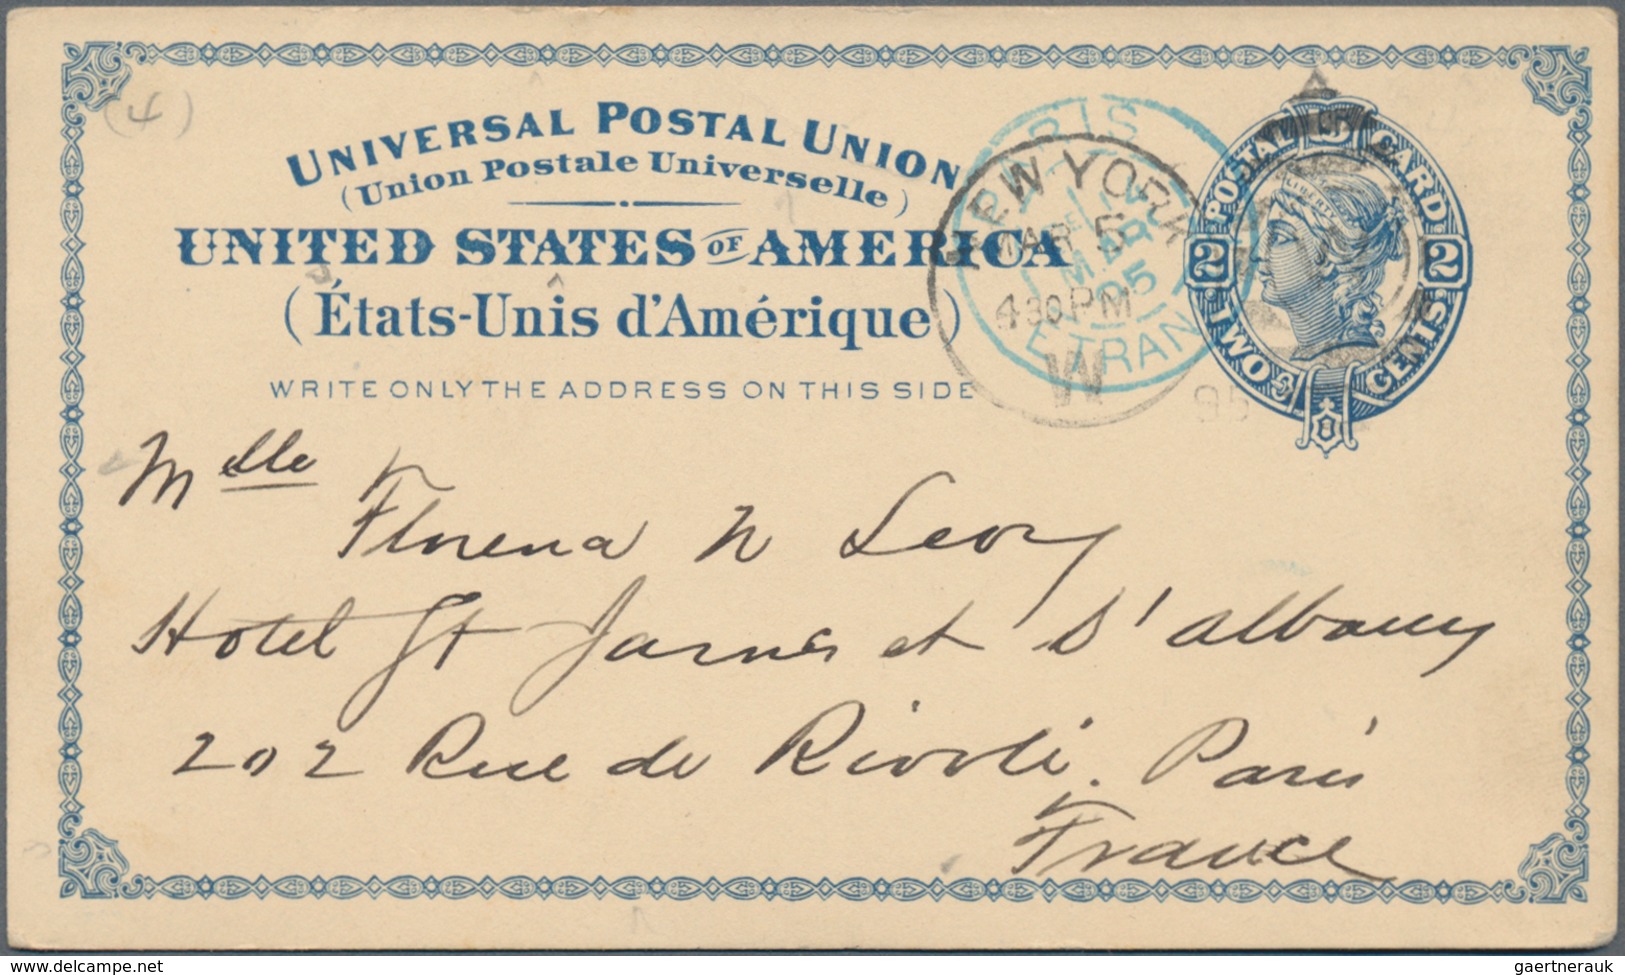 (4)
UNIVERSAL POSTAL UNION
(Union Postale Universelle)
UNITED STATES OF AMERICA
(États-Unis d'Amérique)
WRITE ONLY THE ADDRESS ON THIS SIDE
PARIS
MARS
95
ETRAN
NEW YORK
MAR 5
430PM
W
95
POSTAL CARD
U S
LIBERTY
2 2
TWO CENTS
Mlle Florena N Levy
Hotel St James et D'Albany
202 Rue de Rivoli. Paris
France
delcampe.net
gaertnerauk